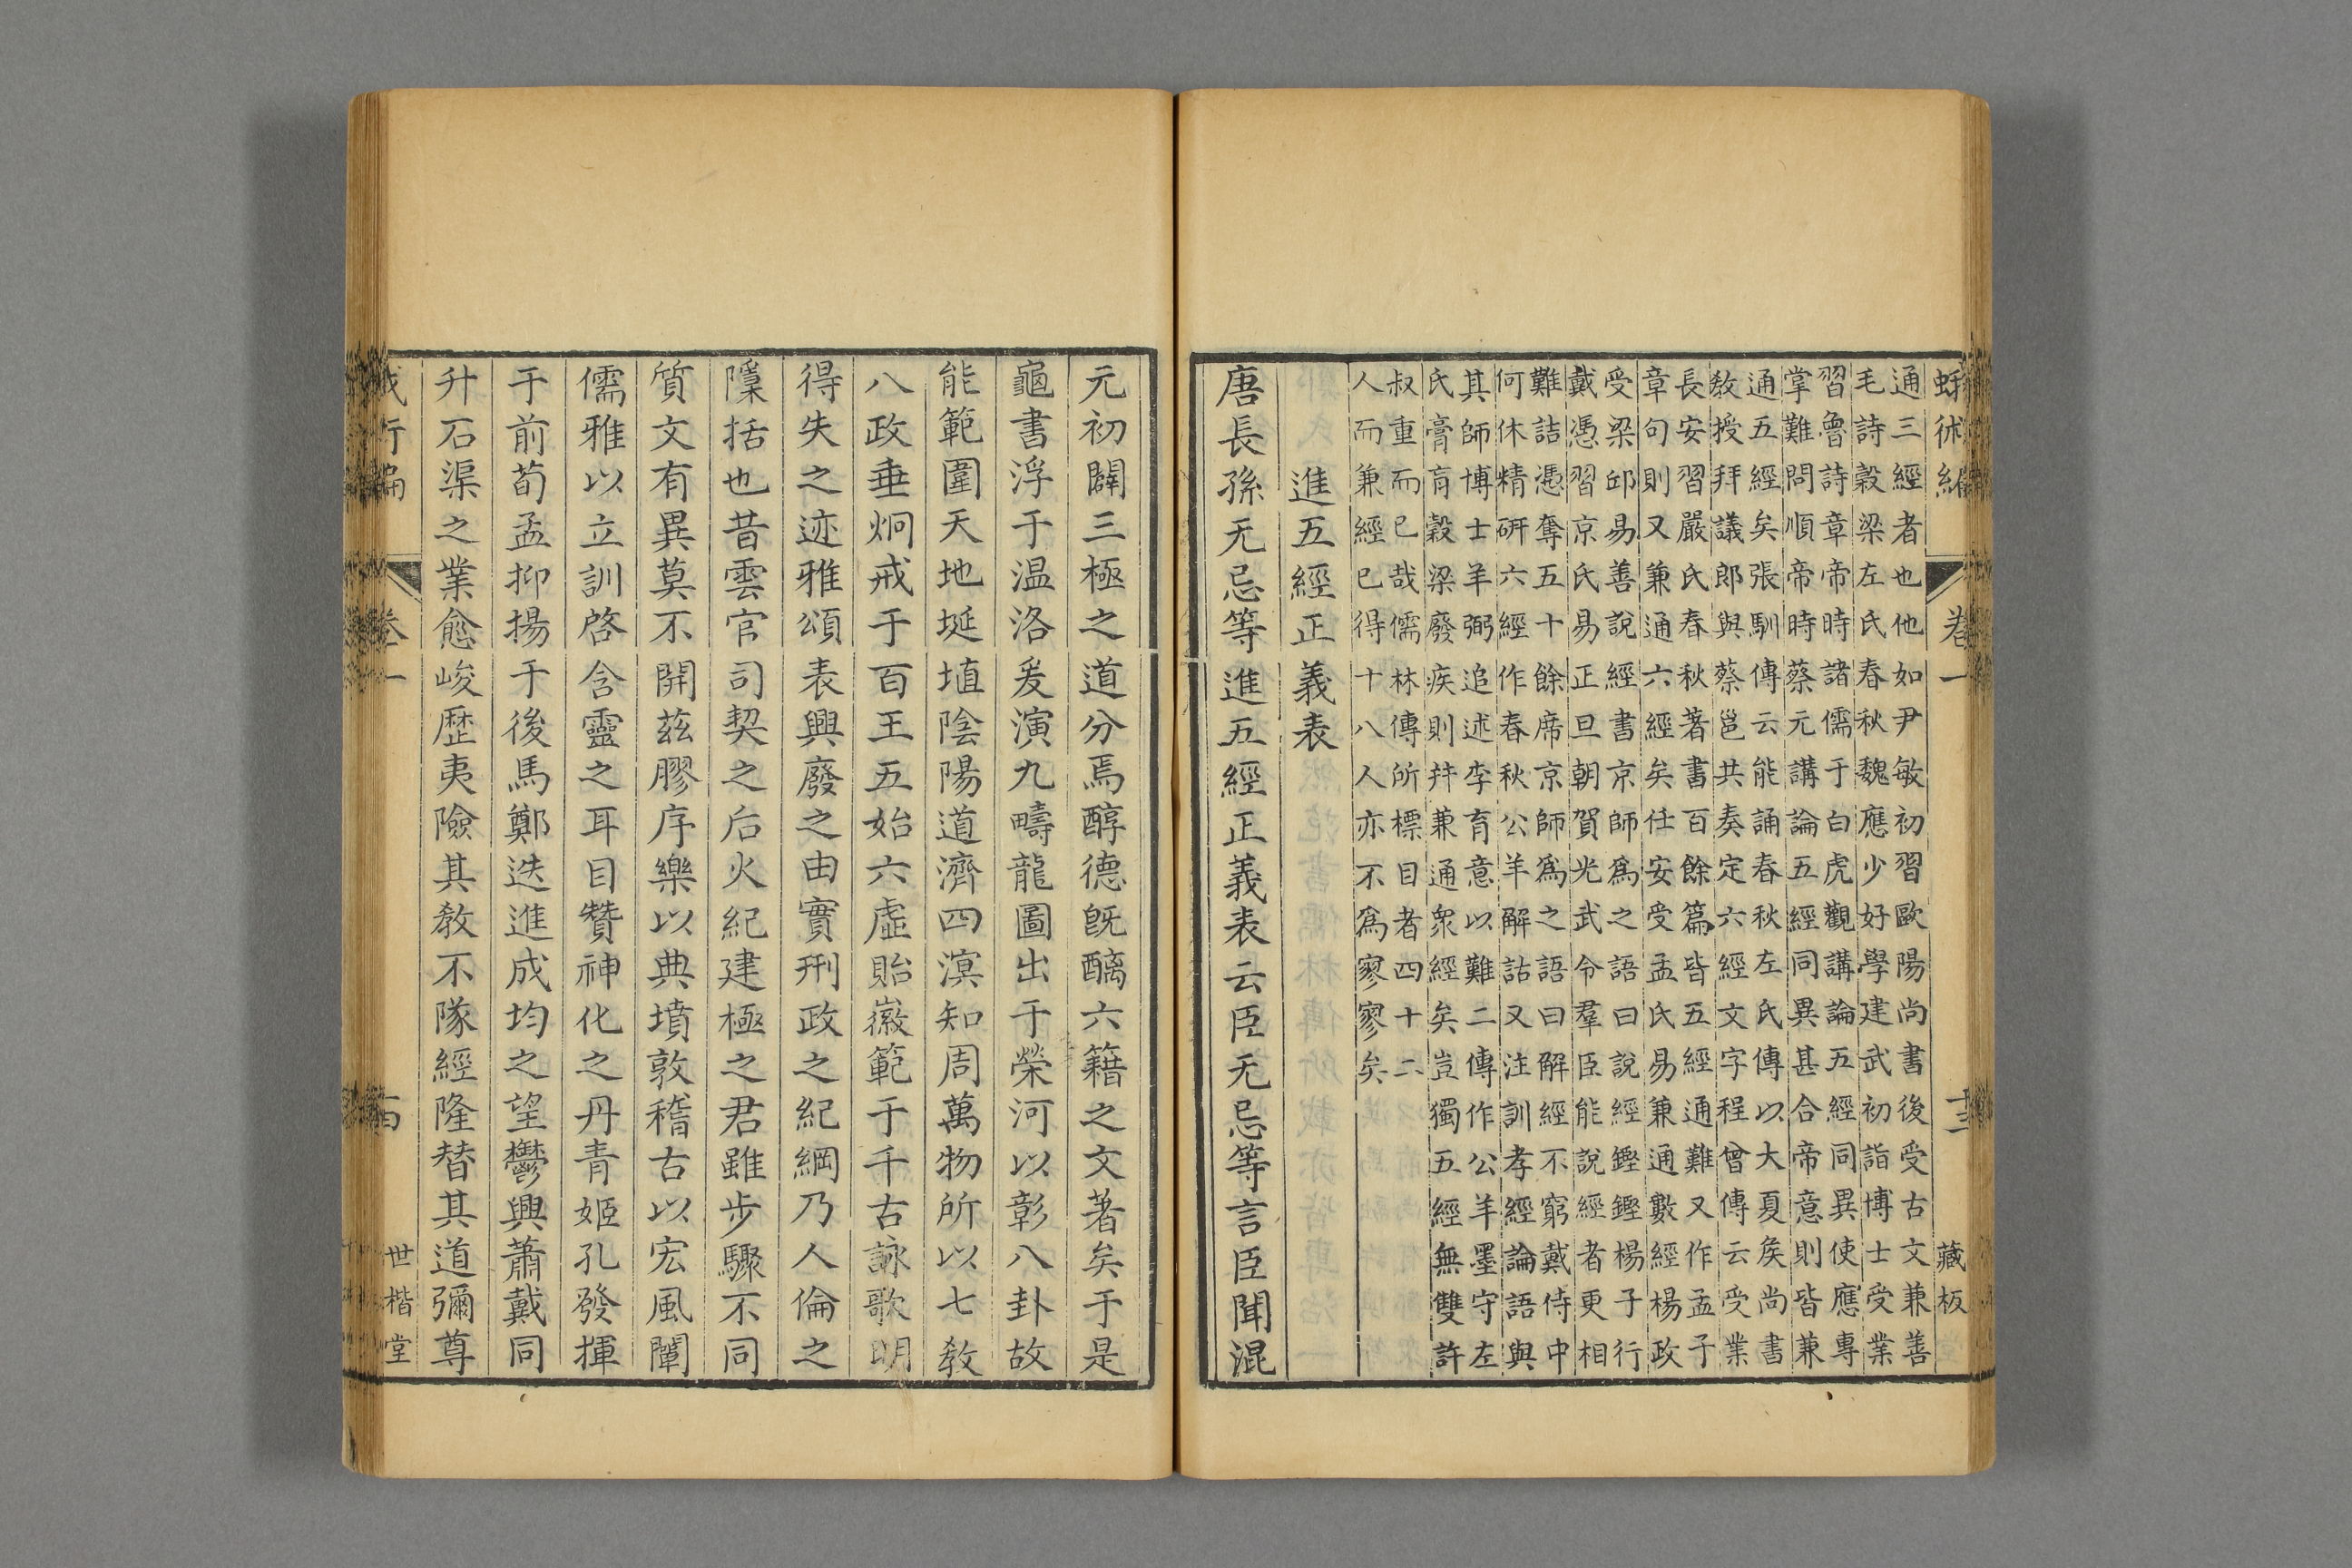 蛾術編 卷一 十三 藏板
通三經者也他如尹敏初習歐陽尚書後受古文兼善
毛詩穀梁左氏春秋魏應少好學建武初詣博士受業
習魯詩章帝時諸儒于白虎觀講論五經同異使應專
掌難問順帝時蔡元講論五經同異甚合帝意則皆兼
通五經矣張馴傳云能誦春秋左氏傳以大夏矦尚書
教授拜議郎與蔡邕共奏定六經文字程曾傳云受業
長安習嚴氏春秋著書百餘篇皆五經通難又作孟子
章句則又兼通六經矣任安受孟氏易兼通數經楊政
受梁邱易善說經書京師爲之語曰說經鏗鏗楊子行
戴憑習京氏易正旦朝賀光武令羣臣能說經者更相
難詰憑奪五十餘席京師爲之語曰解經不窮戴侍中
何休精硏六經作春秋公羊解詁又注訓孝經論語與
其師博士羊弼追述李育意以難二傳作公羊墨守左
氏膏肓穀梁廢疾則幷兼通衆經矣豈獨五經無雙許
叔重而已哉儒林傳所標目者四十二
人而兼經已得十八人亦不爲寥寥矣
進五經正義表
唐長孫无忌等進五經正義表云臣无忌等言臣聞混
元初闢三極之道分焉醇德旣醨六籍之文著矣于是
龜書浮于溫洛爰演九疇龍圖出于榮河以彰八卦故
能範圍天地埏埴陰陽道濟四溟知周萬物所以七教
八政垂炯戒于百王五始六虛貽徽範于千古詠歌明
得失之迹雅頌表興廢之由實刑政之紀綱乃人倫之
隱括也昔雲官司契之后火紀建極之君雖步驟不同
質文有異莫不開茲膠序樂以典墳敦稽古以宏風闡
儒雅以立訓啓含靈之耳目贊神化之丹青姬孔發揮
于前荀孟抑揚于後馬鄭迭進成均之望鬱興蕭戴同
升石渠之業愈峻歷夷險其教不隊經隆替其道彌尊
卷一 世楷堂